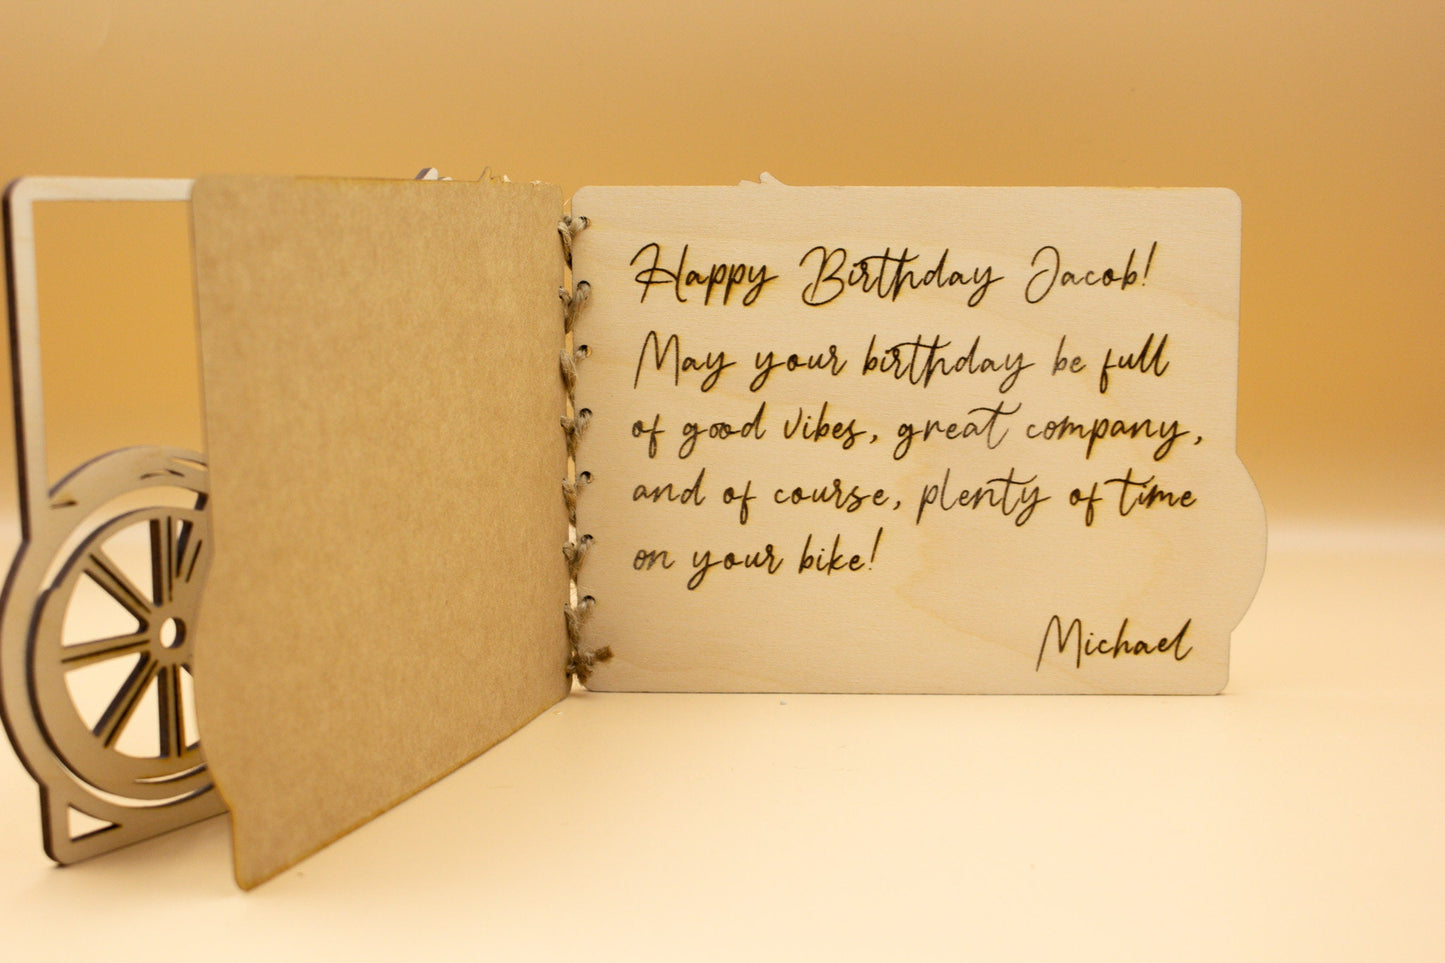 Happy Birthday Jacob!
May your birthday be full
of good vibes, great company,
and of course, plenty of time
on your bike!
Michael